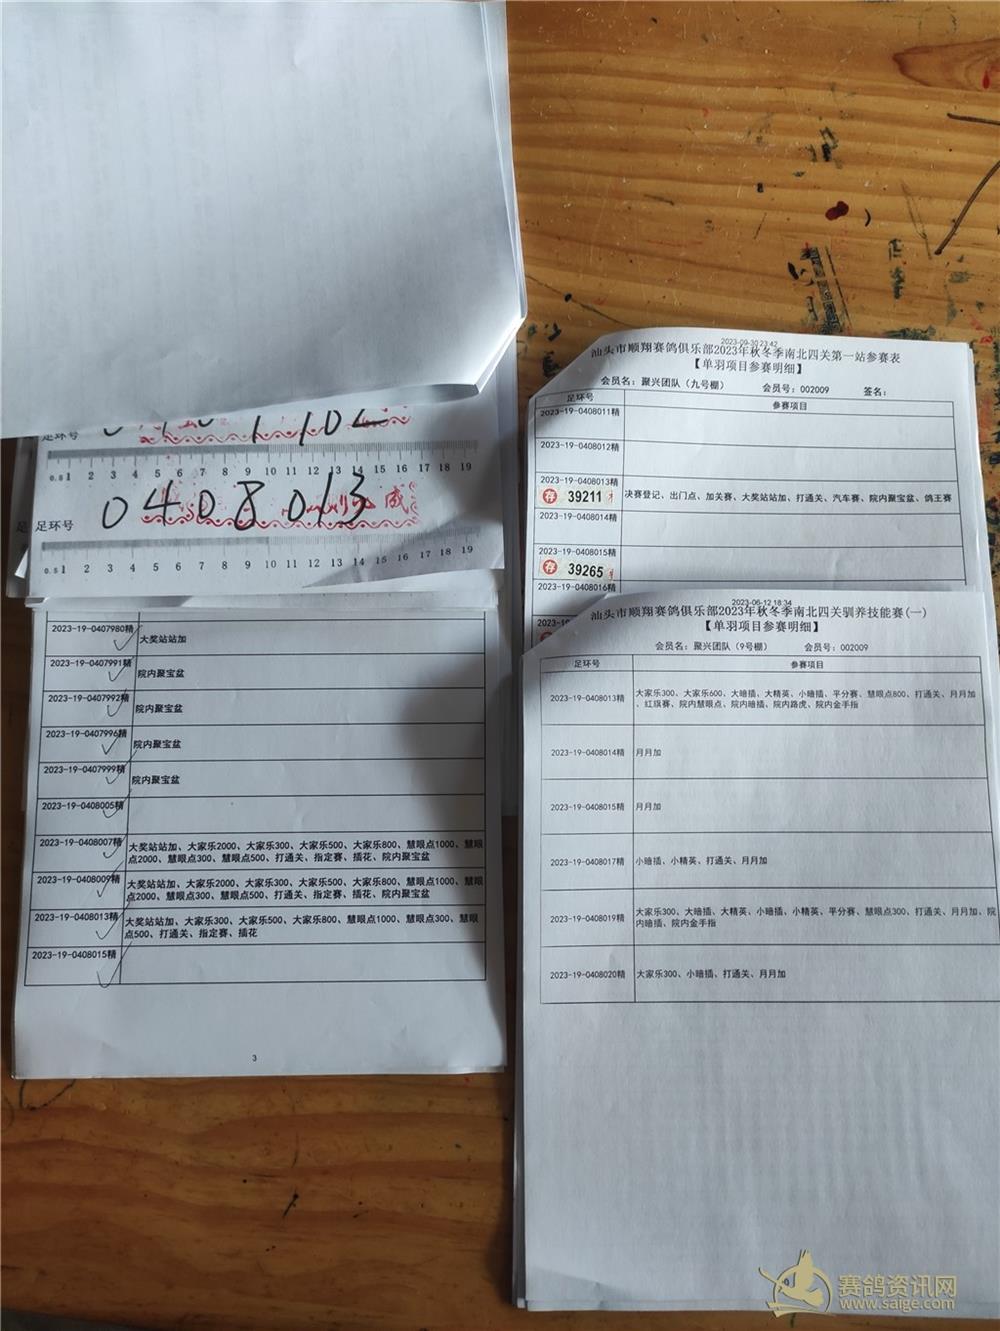 足环号
0.5 1 2 3 4 5 6 7 8 9 10 11 12 13 14 15 16 17 18 19
足 足环号
0408013
0.5 1 2 3 4 5 6 7 8 9 10 11 12 13 14 15 16 17 18 19
2023-19-0407980精 大奖站站加
2023-19-0407991精 院内聚宝盆
2023-19-0407992精 院内聚宝盆
2023-19-0407996精 院内聚宝盆
2023-19-0407999精 院内聚宝盆
2023-19-0408005精
2023-19-0408007精 大奖站站加、大家乐2000、大家乐300、大家乐500、大家乐800、慧眼点1000、慧眼
点2000、慧眼点300、慧眼点500、打通关、指定赛、插花、院内聚宝盆
2023-19-0408009精 大奖站站加、大家乐2000、大家乐300、大家乐500、大家乐800、慧眼点1000、慧眼
点2000、慧眼点300、慧眼点500、打通关、指定赛、插花、院内聚宝盆
2023-19-0408013精 大奖站站加、大家乐300、大家乐500、大家乐800、慧眼点1000、慧眼点300、慧眼
点500、打通关、指定赛、插花
2023-19-0408015精
3
2023-09-30 23:42
汕头市顺翔赛鸽俱乐部2023年秋冬季南北四关第一站参赛表
【单羽项目参赛明细】
会员名：聚兴团队（九号棚） 会员号：002009 签名：
足环号 参赛项目
2023-19-0408011精
2023-19-0408012精
2023-19-0408013精
存 39211 决赛登记、出门点、加关赛、大奖站站加、打通关、汽车赛、院内聚宝盆、鸽王赛
2023-19-0408014精
2023-19-0408015精
存 39265
2023-19-0408016精
2023-06-12 18:34
汕头市顺翔赛鸽俱乐部2023年秋冬季南北四关驯养技能赛(一)
【单羽项目参赛明细】
会员名：聚兴团队（9号棚） 会员号：002009
足环号 参赛项目
2023-19-0408013精 大家乐300、大家乐600、大暗插、大精英、小暗插、平分赛、慧眼点800、打通关、月月加
、红旗赛、院内慧眼点、院内暗插、院内路虎、院内金手指
2023-19-0408014精 月月加
2023-19-0408015精 月月加
2023-19-0408017精 小暗插、小精英、打通关、月月加
2023-19-0408019精 大家乐300、大暗插、大精英、小暗插、小精英、平分赛、慧眼点300、打通关、月月加、院
内暗插、院内金手指
2023-19-0408020精 大家乐300、小暗插、打通关、月月加
赛鸽资讯网
www.saige.com